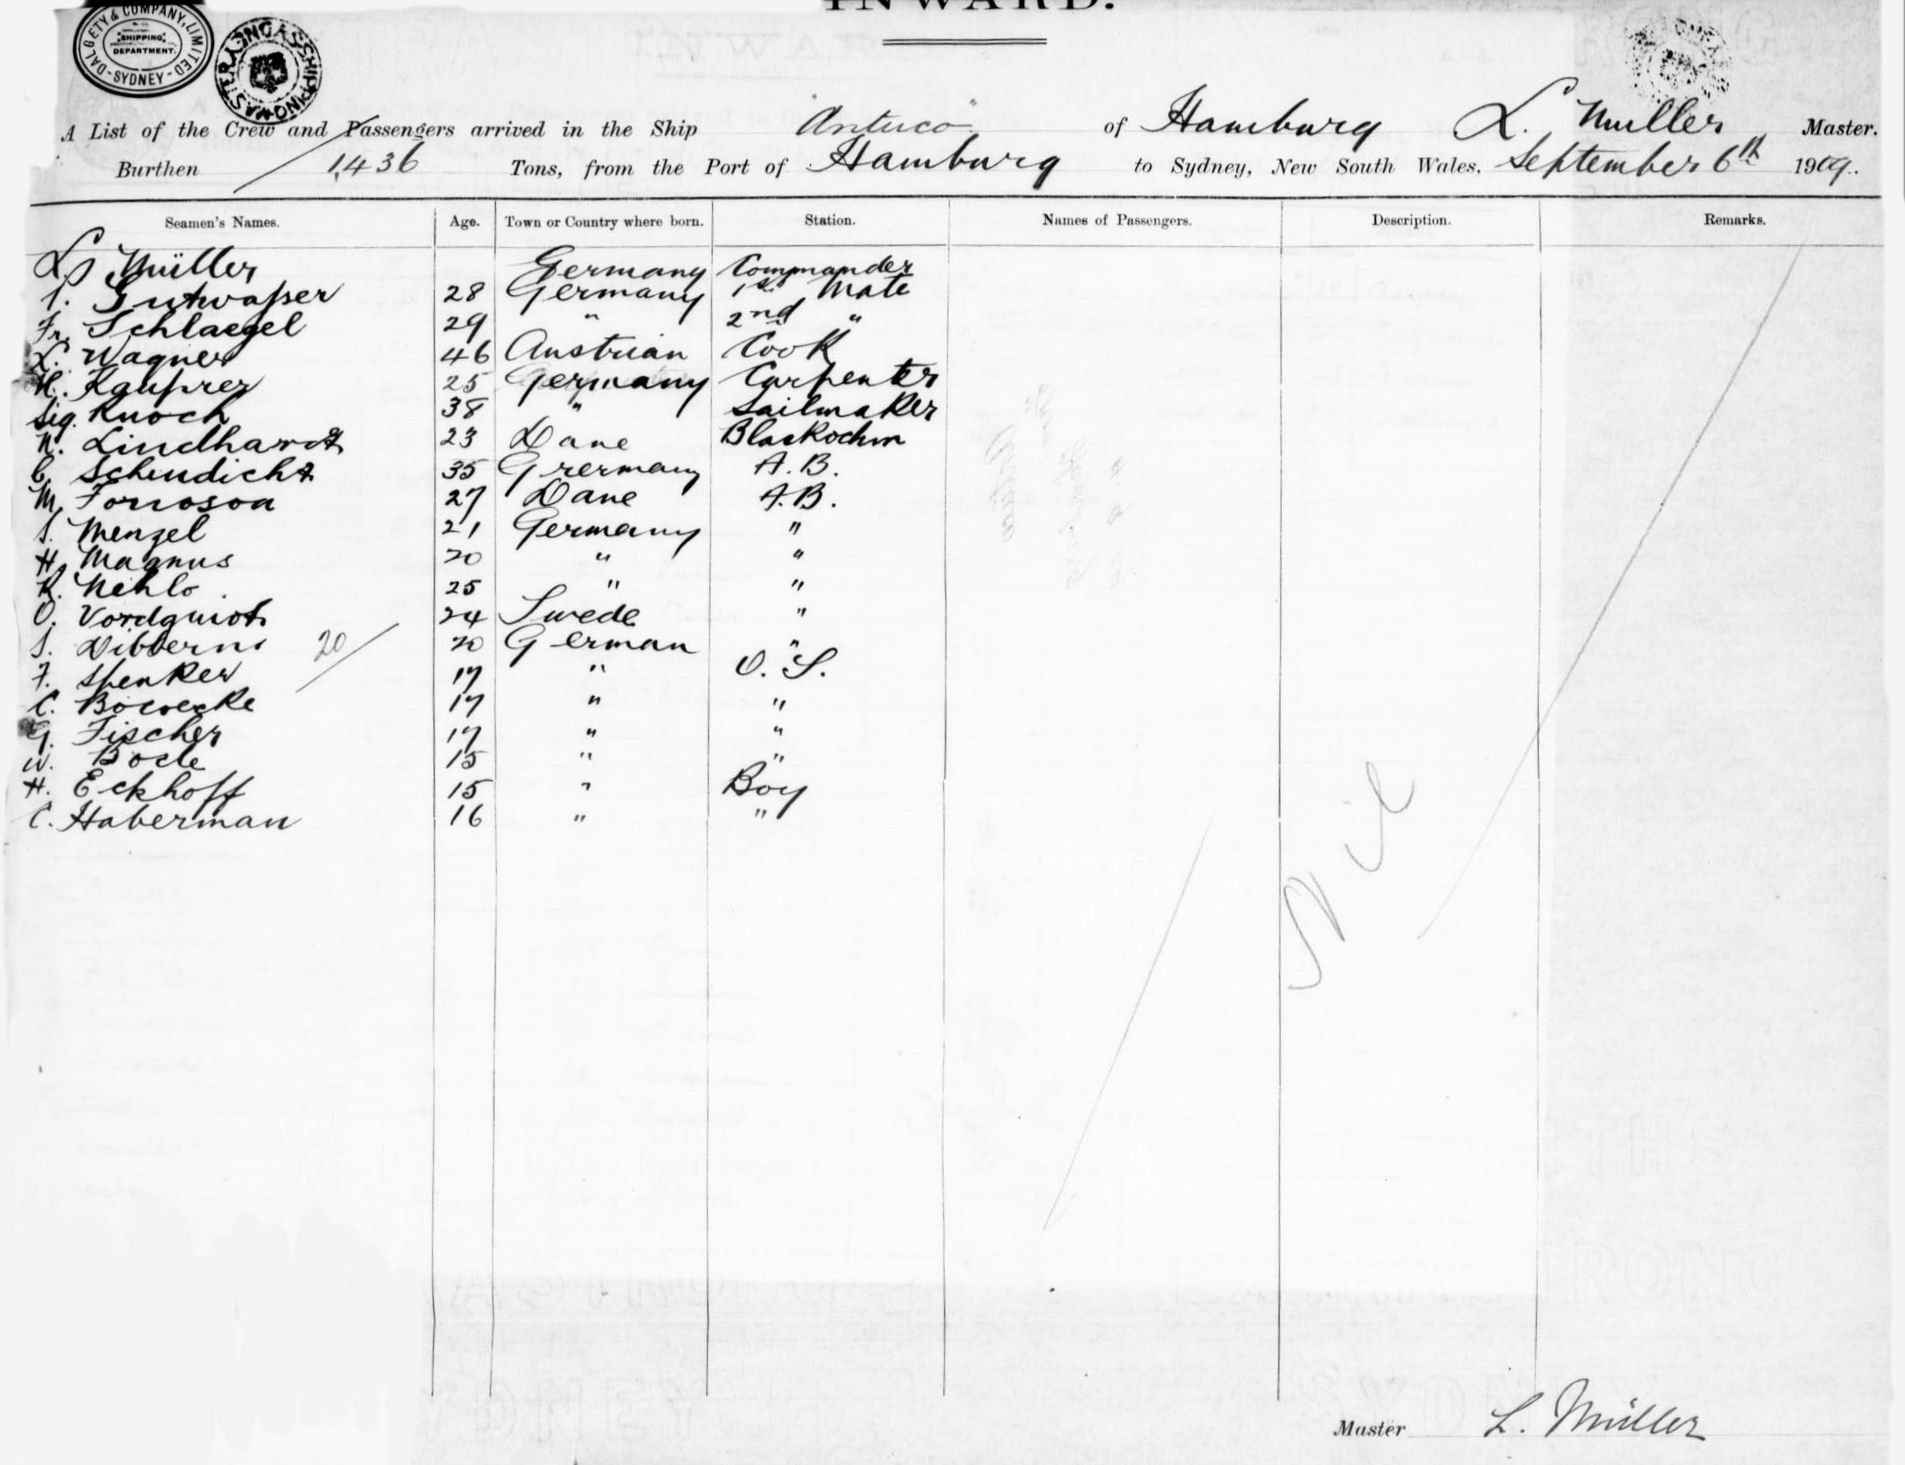 INWARD.
DALGETY & COMPANY, LIMITED
SHIPPING
DEPARTMENT.
SYDNEY
A List of the Crew and Passengers arrived in the Ship "Antuco" of Hamburg L. Muller Master.
Burthen 1,436 Tons, from the Port of Hamburg to Sydney, New South Wales, September 6th 1909.
Seamen's Names. Age. Town or Country where born. Station. Names of Passengers. Description. Remarks.
L. Müller Germany Commander
Gutwasser 28 Germany 1st Mate
Fr. Schlaegel 29 " 2nd "
L. Wagner 46 Austrian Cook
H. 25 Germany Carpenter
Sig. Knoch 38 " Sailmaker
N. Lindhardt 23 Dane
C. Schindicht 35 Grermany A.B.
M. 27 Dane A.B.
S. Menzel 21 Germany "
H. Magnus 20 " "
R. Nehlo 25 " "
O. 24 Swede "
S. Dibbern 20 20 German "
F. Spenker 17 " O. S.
C. 17 " "
G. Fischer 17 " "
W. Bode 15 " "
H. Eckhoff 15 " Boy
C. Haberman 16 " "
Nil
Master L. Müller